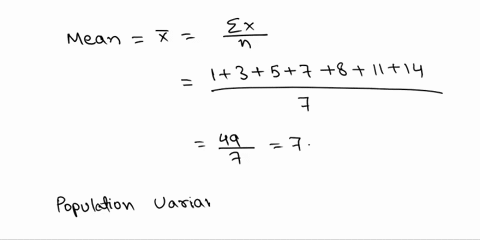 Mean = x̄ = Σx/n
= 1+3+5+7+8+11+14/7
= 49/7 = 7.
Population Varian